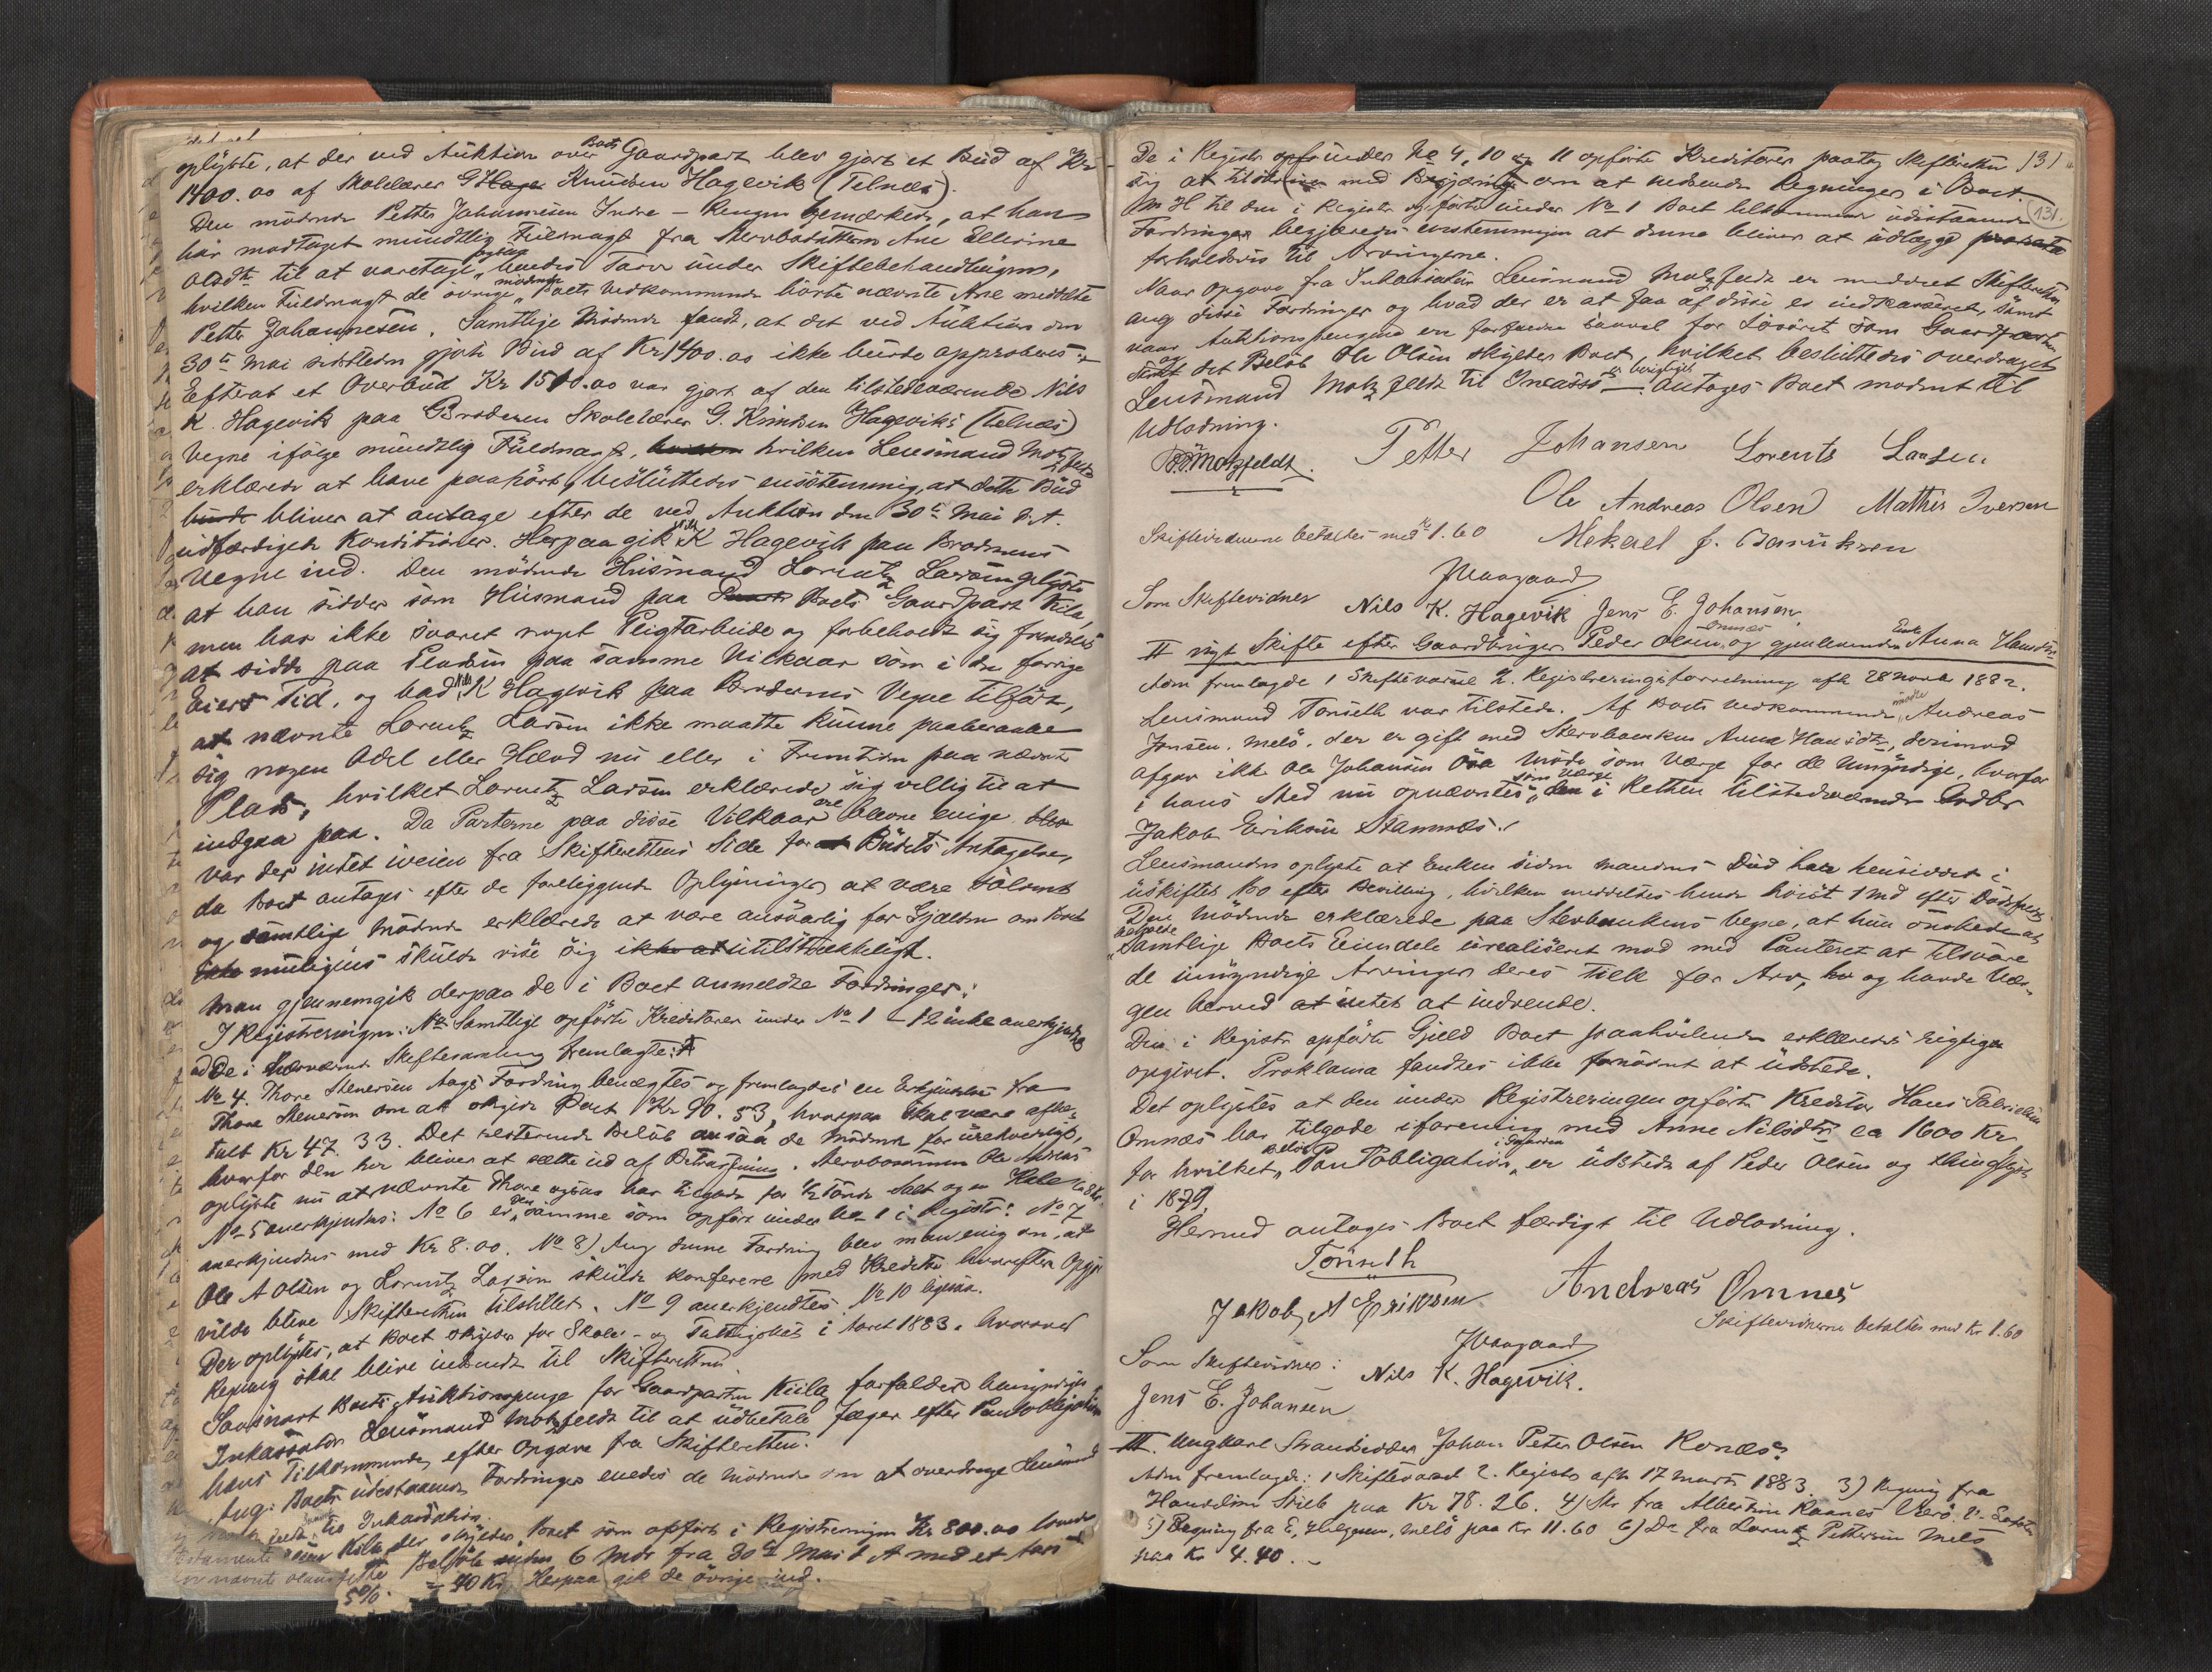 oplyste, at der ved Auktion over Boets Gaardpart blev gjort et Bud af Kr
1400.00 af Skolelærer G Hage Knudsen Hagevik (Telnes).
Den mødende Petter Johannesen Indre- bemærkede, at han
har modtaget mundtlig Fuldmagt fra Stervbodatteren Ane Ellevine
Olsdtr til at varetage hendes Tarv under Skiftebehandlingen,
hvilken Fuldmagt de øvrige mødende Boets Vedkommende hørte nævnte Ane meddelte
Petter Johannesen. Samtlige Mødende fandt, at det ved Auktion den
30te Mai sidstleden gjorte Bud af Kr 1400.00 ikke burde approberes.
Efterat et Overbud Kr 1510.00 var gjort af den tilstedeværende Nils
K. Hagevik paa Broderen Skolelærer G. Knudsen Hageviks (Telnes)
Vegne ifølge mundtlig Fuldmagt, hvilken Lensmand Motzfeldt
erklærede at have paahørt, besluttedes enstemmig, at dette Bud
burde bliver at antage efter de ved Auktion den 30te Mai d. A.
udfærdigede Konditioner. Herpaa gik Nils K Hagevik paa Broderens
Vegne ind. Den mødende Husmand Lorentz Larsen oplyste
at han sidder som Husmand paa Boets Gaardpart Kila,
men har ikke svaret noget Pligtarbeide og forbeholdt sig fremdeles
at sidde paa Pladsen paa samme Vilkaar som i den forrige
Eiers Tid, og bad Nils K Hagevik paa Broderens Vegne tilført,
at nævnte Lorentz Larsen ikke maatte kunne paaberaabe
sig nogen Odel eller Hævd nu eller i Fremtiden paa nævnte
Plads, hvilket Lorentz Larsen erklærede sig villig til at
indgaa paa. Da Parterne paa disse Vilkaar ere blevne enige
var der intet iveien fra Skifterettens Side for Budets Antagelse,
da Boet antages efter de foreliggende Oplysninger at være solvent
og samtlige Mødende erklærede at være ansvarlig for Gjælden om Boet
muligens skulde vise sig utilstrækkeligt.
Man gjennemgik derpaa de i Boet anmeldte Fordringer:
I Registreringen: Samtlige opførte Kreditorer under No 1 - 12 anerkjendtes
ad De i nærværende Skiftesamling fremlagte:
No 4. Thore Stenersen Aags Fordring benægtes og fremlagdes en Erkjendelse fra
Thore Stenersen om at skylde Boet Kr 90.53, hvorpaa skal være afbe-
talt Kr 47.33. Det resterende Beløb ansaa de Mødende for urekverligt,
hvorfor den her bliver at sætte ud af Betragtning. Stervbosønnen Ole Andreas
oplyste nu at nævnte Thore ogsaa har tilgode for ½ Tønde Salt og en
No 5 anerkjendes: No 6 er den samme som opført under No 1 i Registr: No 7
anerkjendes med Kr 8.00. No 8) Ang denne Fordring blev man enig om, at
Ole A Olsen og Lorentz Larsen skulde konferere med Kreditor hvorefter Opgj
vilde blive Skifteretten tilstillet. No 9 anerkjendtes No 10 ligesaa.
Der oplystes, at Boet skylder for Skole- og Fattigskat i Aaret 1883. hvorover
Regning skal blive indsendt til Skifteretten.
Saasnart Boets Auktionspenge for Gaardparten Kiila forfalder bemyndiges
Inkassator Lensmand Motzfeldt til at udbetale Jæger efter Pantobligation
hans Tilkommende efter Opgave fra Skifteretten.
Ang: Boets udestaaende Fordringer enedes de Mødende om at overdrage Lensmand
til Inkassation.
Kila der skylder Boet som opført i Registreringen Kr 800.00 lovede
Beløb inden 6 Mdr fra 30te Mai d A med et
5%. = 40 Kr. Herpaa gik de øvrige ind.
De i Registr opfø under No 4, 10 og 11 opførte Kreditorer paatog Skifteretten 131
sig at tilskrive med Begjæring om at indsende Regninger i Boet. 131.
M H til den i Registr opførte under No 1 Boet tilkommende udestaaende
Fordringer begjæredes enstemmigen at denne bliver at udlægge prorata
forholdsvis til Arvingerne.
Naar Opgave fra Inkassator Lensmand Motzfeldt er meddelt Skifteretten
ang disse Fordringer og hvad der er at faa af disse er indkasseret, samt
naar Auktionspengene ere forfaldne saavel for Løsøret som Gaardparten
og det Beløb Ole Olsen skylder Boet, hvilket besluttedes overdraget
Lensmand Motzfeldt til Incasso er berigtiget - antages Boet modent til
Udlodning.
Motzfeldt. Petter Johansen Lorents Larsen
Ole Andreas Olsen Mathis Iversen
Skiftevidnerne betaltes med Kr 1.60 Mekael J. Baruksen
Waagaard
Som Skiftevidner Nils K. Hagevik Jens E. Johansen.
II nyt Skifte efter Gaardbruger Peder Olsen Onnæs og gjenlevende Enke Anna Hansdtr
Adm fremlagde 1 Skiftevarsel 2. Registreringsforretning afh 28 Novb 1882.
Lensmand Tønseth var tilstede. Af Boets Vedkommende mødte Andreas
Jensen. Melø. der er gift med Stervboenken Anna Hansdtr, derimod
afgav ikke Ole Johansen Øra Møde som Værge for de Umyndige, hvorfor
i hans Sted nu opnævntes som Værge den i Retten tilstedeværende Gdbr
Jakob Eriksen Stamnæs.
Lensmanden oplyste at Enken siden Mandens Død har hensiddet i
uskiftet Bo efter Bevilling, hvilken meddeltes hende høist 1 Md efter Dødsfaldet
Den Mødende erklærede paa Stervboenkens Vegne, at hun ønskede at
beholde Samtlige Boets Eiendele urealiseret mod med Panteret at tilsvare
de umyndige Arvinger deres Tilk for Arv, og havde Vær-
gen herved at intet at indvende.
Den i Registr opførte Gjæld Boet paahvilende erklæredes rigtigen
opgivet. Proklama fandtes ikke fornødent at udstede.
Det oplystes at den under Registreringen opførte Kreditor Hans Fabrielsen
Onnæs har tilgode i forening med Anne Nilsdtr ca 1600 Kr
for hvilket Beløb Pantobligation er udstedt af Peder Olsen og thinglyst
i 1879.
Herved antages Boet færdigt til Udlodning.
Tønseth
Jakob A Eriksen Andreas Onnes
Skiftevidnerne betaltes med Kr 1.60
Waagaard
Som Skiftevidner: Nils K. Hagevik.
Jens E. Johansen
III. Ungkarl Strandsidder Johan Peter Olsen Konæs
Adm fremlagde: 1 Skiftevarsel 2. Registr afh 17 Marts 1883. 3) Regning fra
paa Kr 78.26. 4) Skr fra Albertine
5) Regning fra E, Helgesen, Melø paa Kr 11.60 6) Do fra Lorentz Pettersen Melø
paa Kr 4.40.